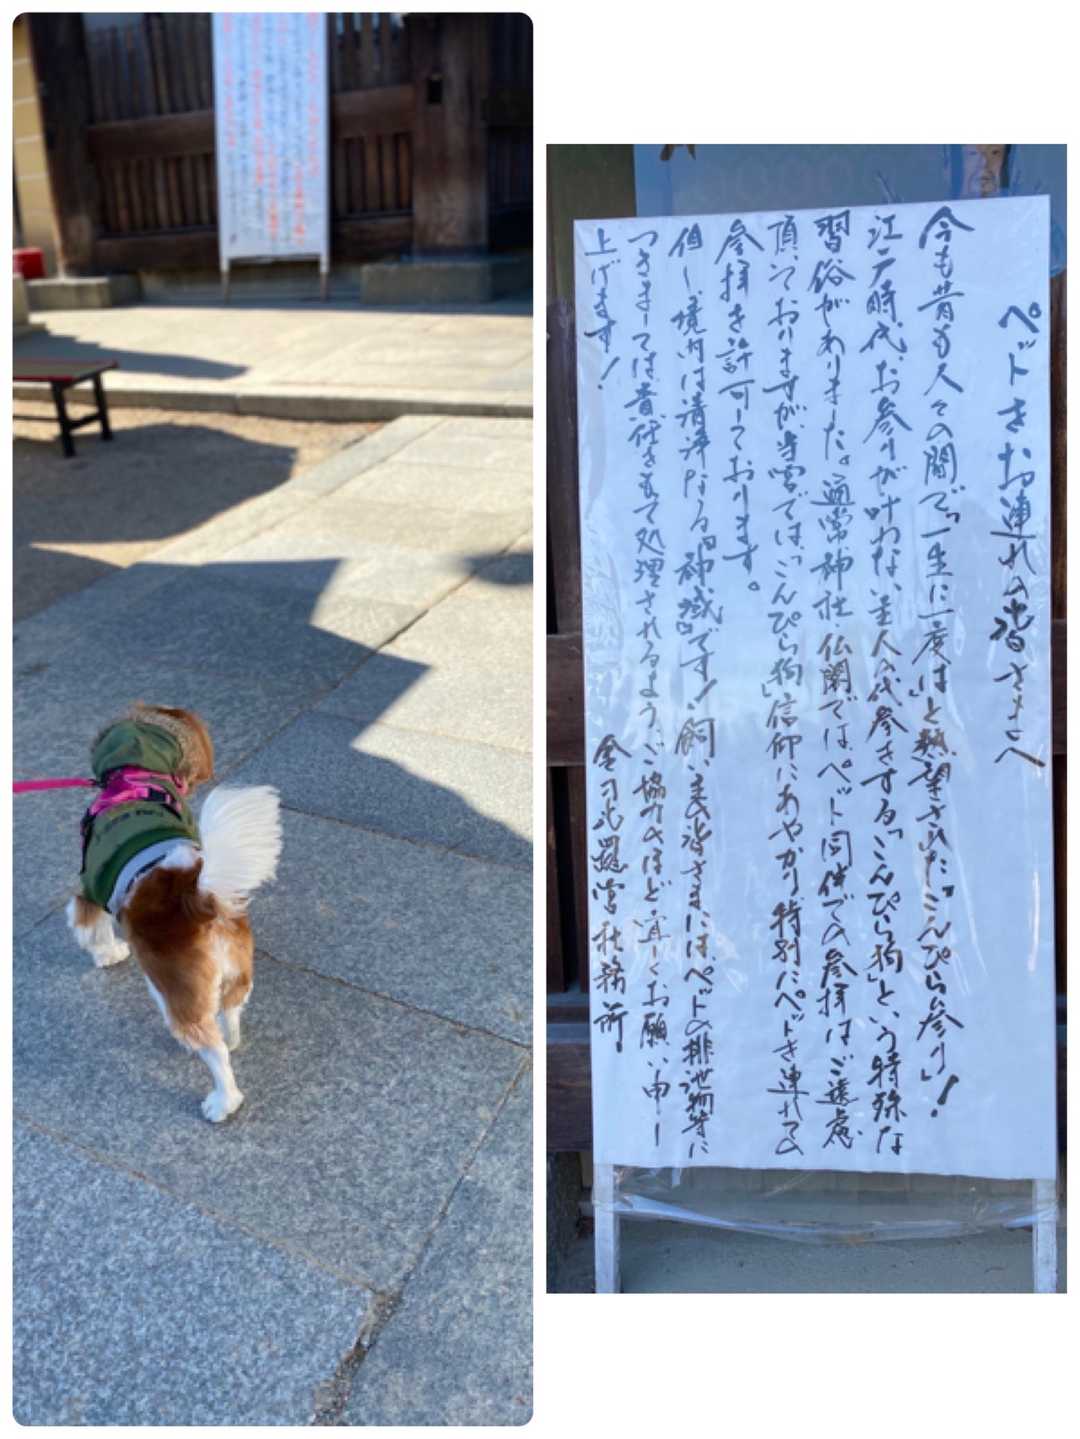 ペットをお連れの皆さまへ
今も昔も人々の間で「一生に一度は」と熱望された「こんぴら参り」!
江戸時代、お参りが叶わない主人の代参をする「こんぴら狗」という特殊な
習俗がありました。通常神社・仏閣ではペット同伴での参拝はご遠慮
頂いておりますが、当宮では「こんぴら狗」信仰にあやかり特別にペットを連れての
参拝を許可しております。
但し、境内は清浄なる『神域』です!飼い主の皆さまにはペットの排泄物等に
つきましては責任をもって処理されるよう、ご協力のほど宜しくお願い申し
上げます!
金刀比羅宮社務所